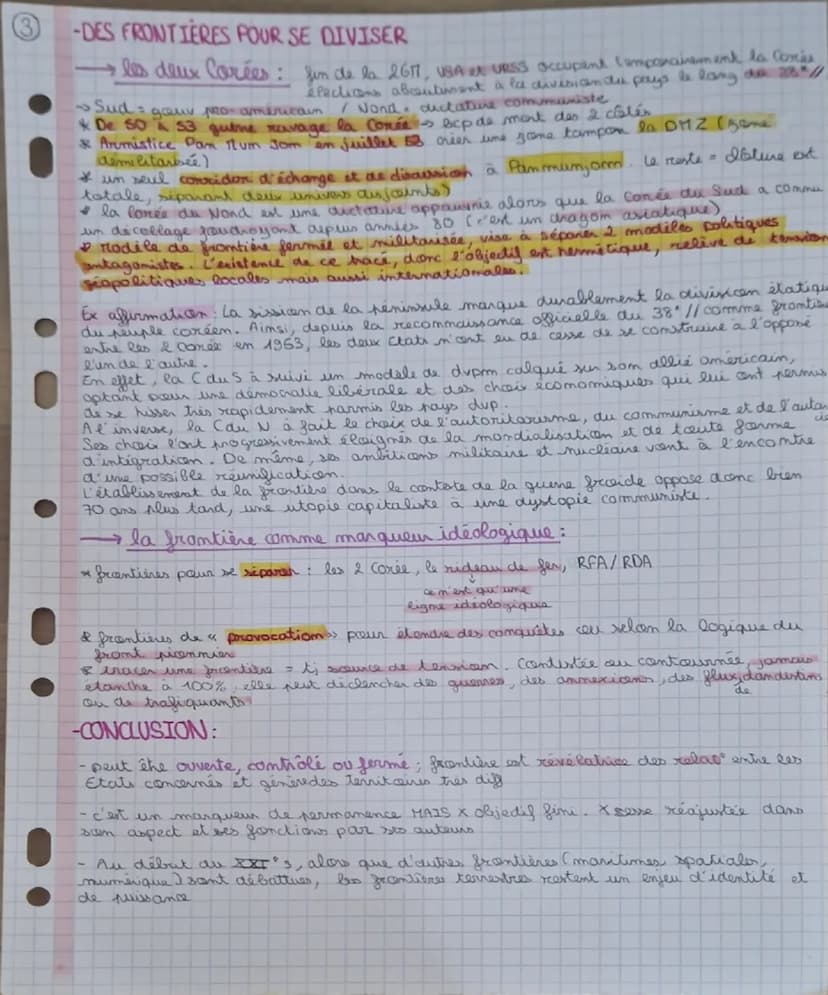 ③
-DES FRONTIÈRES POUR SE DIVISER
→ les deux Corées : fin de la 2GM, USA et URSS occupent temporairement la Corée
élections aboutissent à la division du pays le long du 38°//
→ Sud = gouv pro-américain / Nord = dictature communiste
* De 50 à 53 guerre ravage la Corée → bcp de mort des 2 côtés
* Armistice Pan Mum Jom en juillet 53 créer une zone tampon la DMZ (zone
démilitarisée)
* un seul corridor d'échange et de discussion à Pammunjom. Le reste = clôture est
totale, séparant deux univers disjoints)
* la Corée du Nord est une dictature appauvrie alors que la Corée du Sud a connu
un décollage foudroyant depuis années 80 (c'est un dragon asiatique)
* Modèle de frontière fermée et militarisée, vise à séparer 2 modèles politiques
antagonistes. L'existence de ce tracé, donc l'objectif est hermétique, relève de tension
géopolitiques locales mais aussi internationales.
Ex affirmation : La sission de la péninsule marque durablement la division étatique
du peuple coréen. Ainsi, depuis la reconnaissance officielle du 38°// comme frontière
entre les 2 Corée en 1953, les deux Etats n'ont eu de cesse de se construire à l'opposé
l'un de l'autre.
En effet, la C du S à suivi un modèle de dvpm calqué sur son allié américain,
optant pour une démocratie libérale et des choix économiques qui lui ont permis
de se hisser très rapidement parmis les pays dvp.
A l'inverse, la C du N à fait le choix de l'autoritarisme, du communisme et de
Ses choix l'ont progressivement éloignés de la mondialisation et de toute forme
d'intégration. De même, ses ambitions militaire et nucléaire vont à l'encontre
d'une possible réunification.
L'établissement de la frontière dans le contexte de la guerre froide oppose donc bien
70 ans plus tard, une utopie capitaliste à une dystopie communiste.
→ la frontière comme marqueur idéologique :
* frontières pour se séparer : les 2 Corée, le rideau de fer, RFA/RDA
↓
ce n'est qu'une
ligne idéologique
* frontières de « provocation » pour étendre des conquêtes ou selon la logique du
front pionnier
* tracer une frontière = tj source de tension. Contestée ou contournée, jamais
étanche à 100%, elle peut déclencher des guerres, des annexions, des flux clandestins
ou de trafiquants de
-CONCLUSION :
- peut être ouverte, contrôlé ou fermé ; frontière est révélatrice des relat° entre les
Etats concernés et génère des territoires très diff
- c'est un marqueur de permanence MAIS X objectif fini. X cesse réajustée dans
son aspect et ses fonctions par ses auteurs
- Au début du XXI°s, alors que d'autres frontières (maritimes, spatiales,
numérique) sont débattues, les frontières terrestres restent un enjeu d'identité et
de puissance